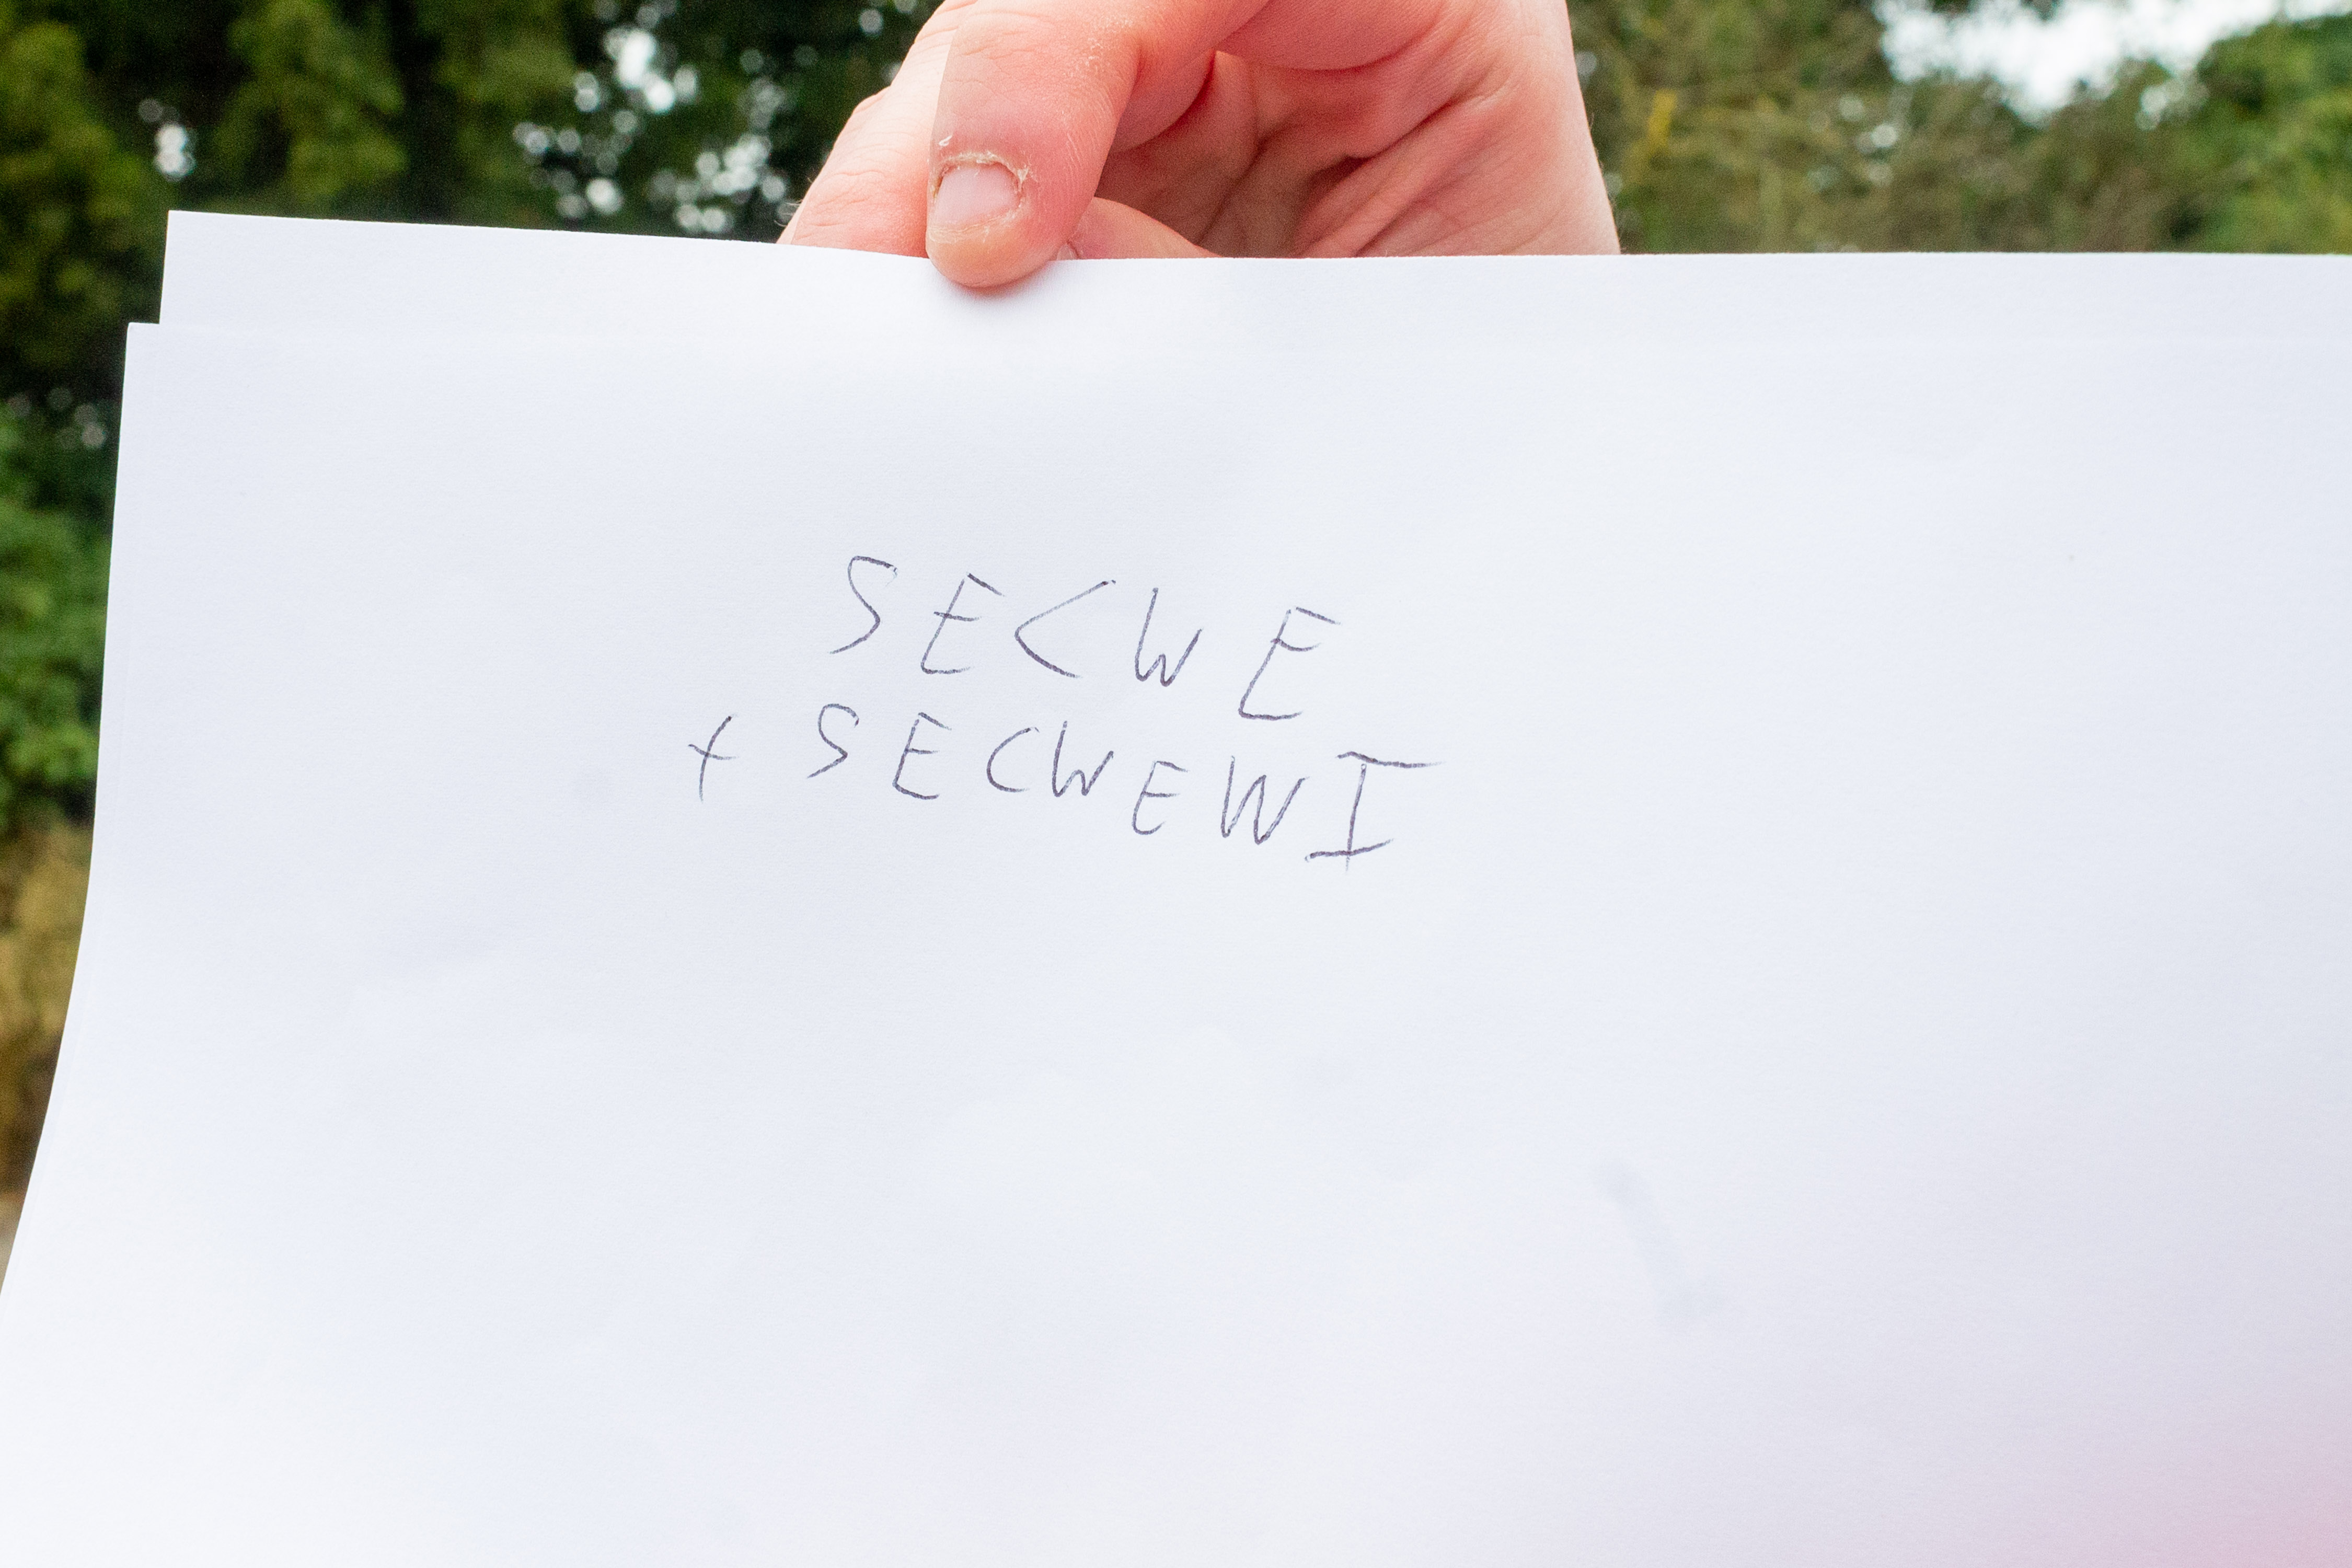 SECWE
+ SECWEWI